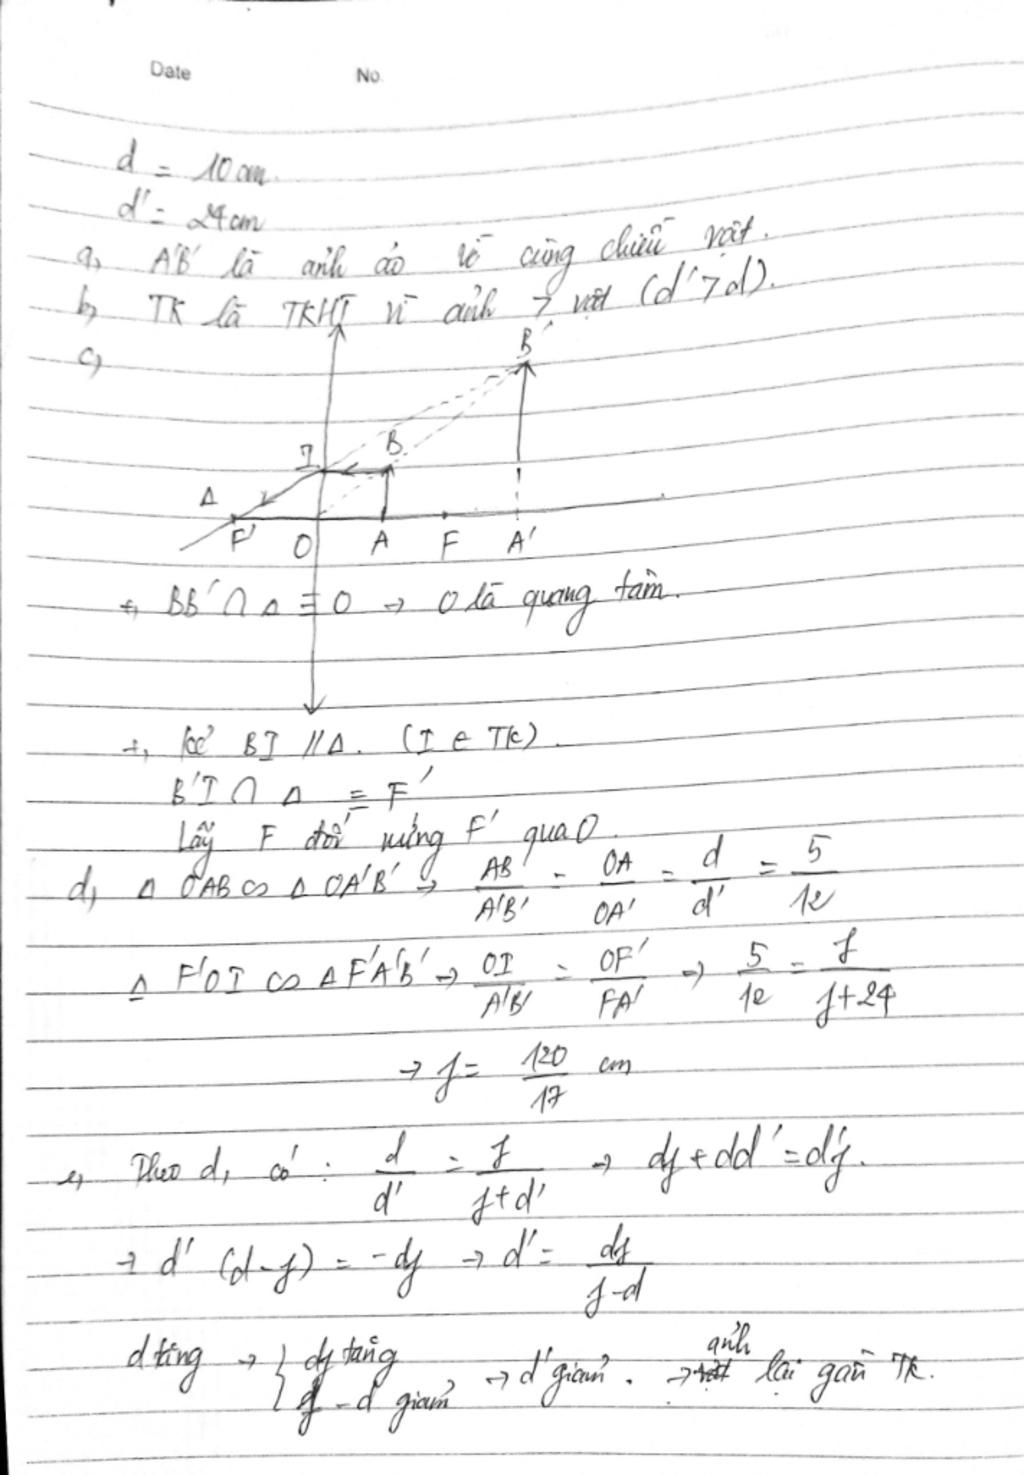 Date No.
d = 10 cm.
d' = 24 cm
a, A'B' là ảnh ảo vì cùng chiều vật.
b, TK là TKHT vì ảnh > vật (d' > d).
c,
B'
I B
Δ F' O A F A'
+, BB' ∩ Δ ≡ O → O là quang tâm.
+, Kẻ BI // Δ. (I ∈ TK).
B'I ∩ Δ ≡ F'
Lấy F đối xứng F' qua O.
d, Δ OAB ∽ Δ OA'B' → AB/A'B' = OA/OA' = d/d' = 5/12
Δ F'OI ∽ Δ F'A'B' → OI/A'B' = OF'/FA' → 5/12 = f/f+24
→ f = 120/17 cm
e, Theo d, có: d/d' = f/f+d' → df + dd' = d'f.
→ d' (d-f) = -df → d' = df/f-d
d tăng → { df tăng
f - d giảm → d' giảm. → ảnh lại gần TK.